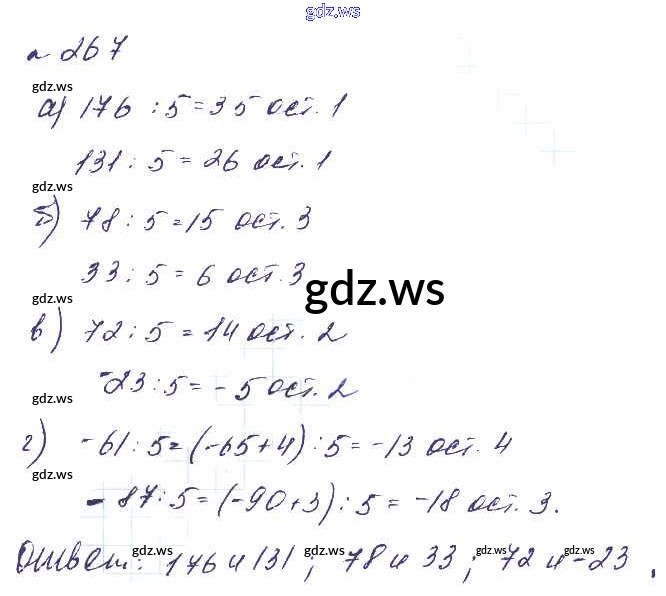 gdz.ws
№ 267
gdz.ws
а) 176 : 5 = 35 ост. 1
131 : 5 = 26 ост. 1
gdz.ws
б) 78 : 5 = 15 ост. 3
33 : 5 = 6 ост. 3
gdz.ws
gdz.ws
в) 72 : 5 = 14 ост. 2
-23 : 5 = -5 ост. 2
gdz.ws
г) -61 : 5 = (-65+4) : 5 = -13 ост. 4
gdz.ws
-87 : 5 = (-90+3) : 5 = -18 ост. 3.
gdz.ws gdz.ws gdz.ws gdz.ws
Ответ: 176 и 131; 78 и 33; 72 и -23.